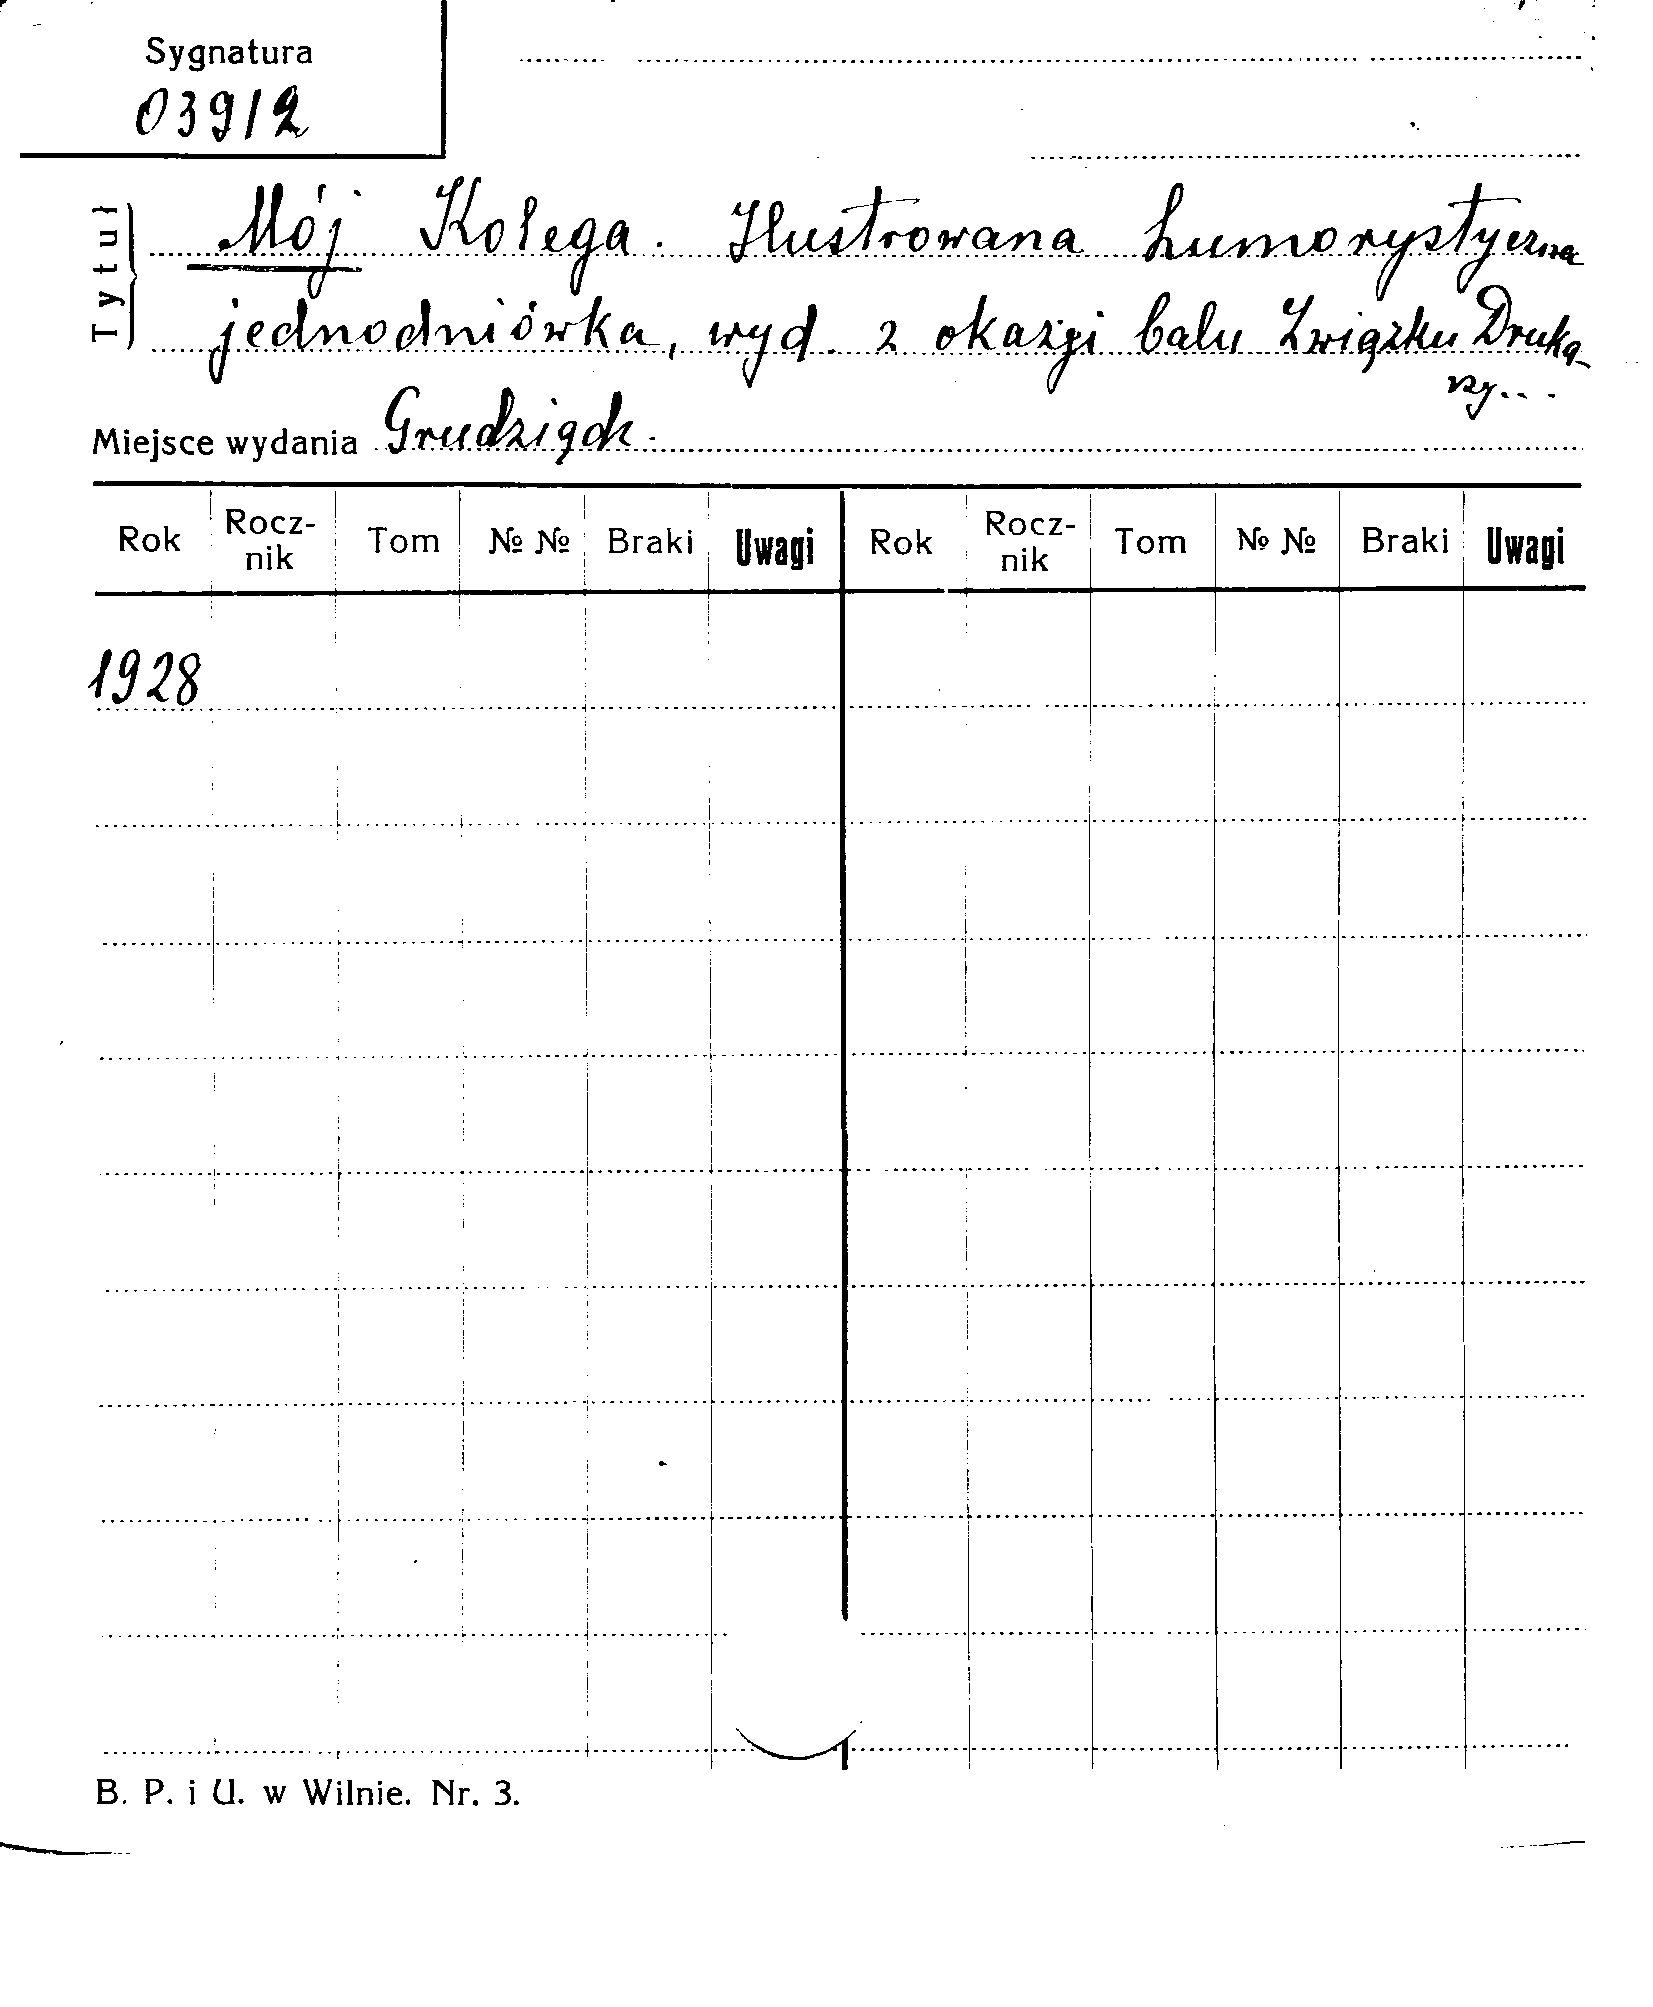 Sygnatura
03912
Tytuł
Mój Kolega. Ilustrowana humorystyczna
jednodniówka, wyd. z okazji balu Związku Druka-
rzy...
Miejsce wydania Grudziądz.
Rok Rocz-nik Tom № № Braki Uwagi Rok Rocz-nik Tom № № Braki Uwagi
1928
B. P. i U. w Wilnie. Nr. 3.